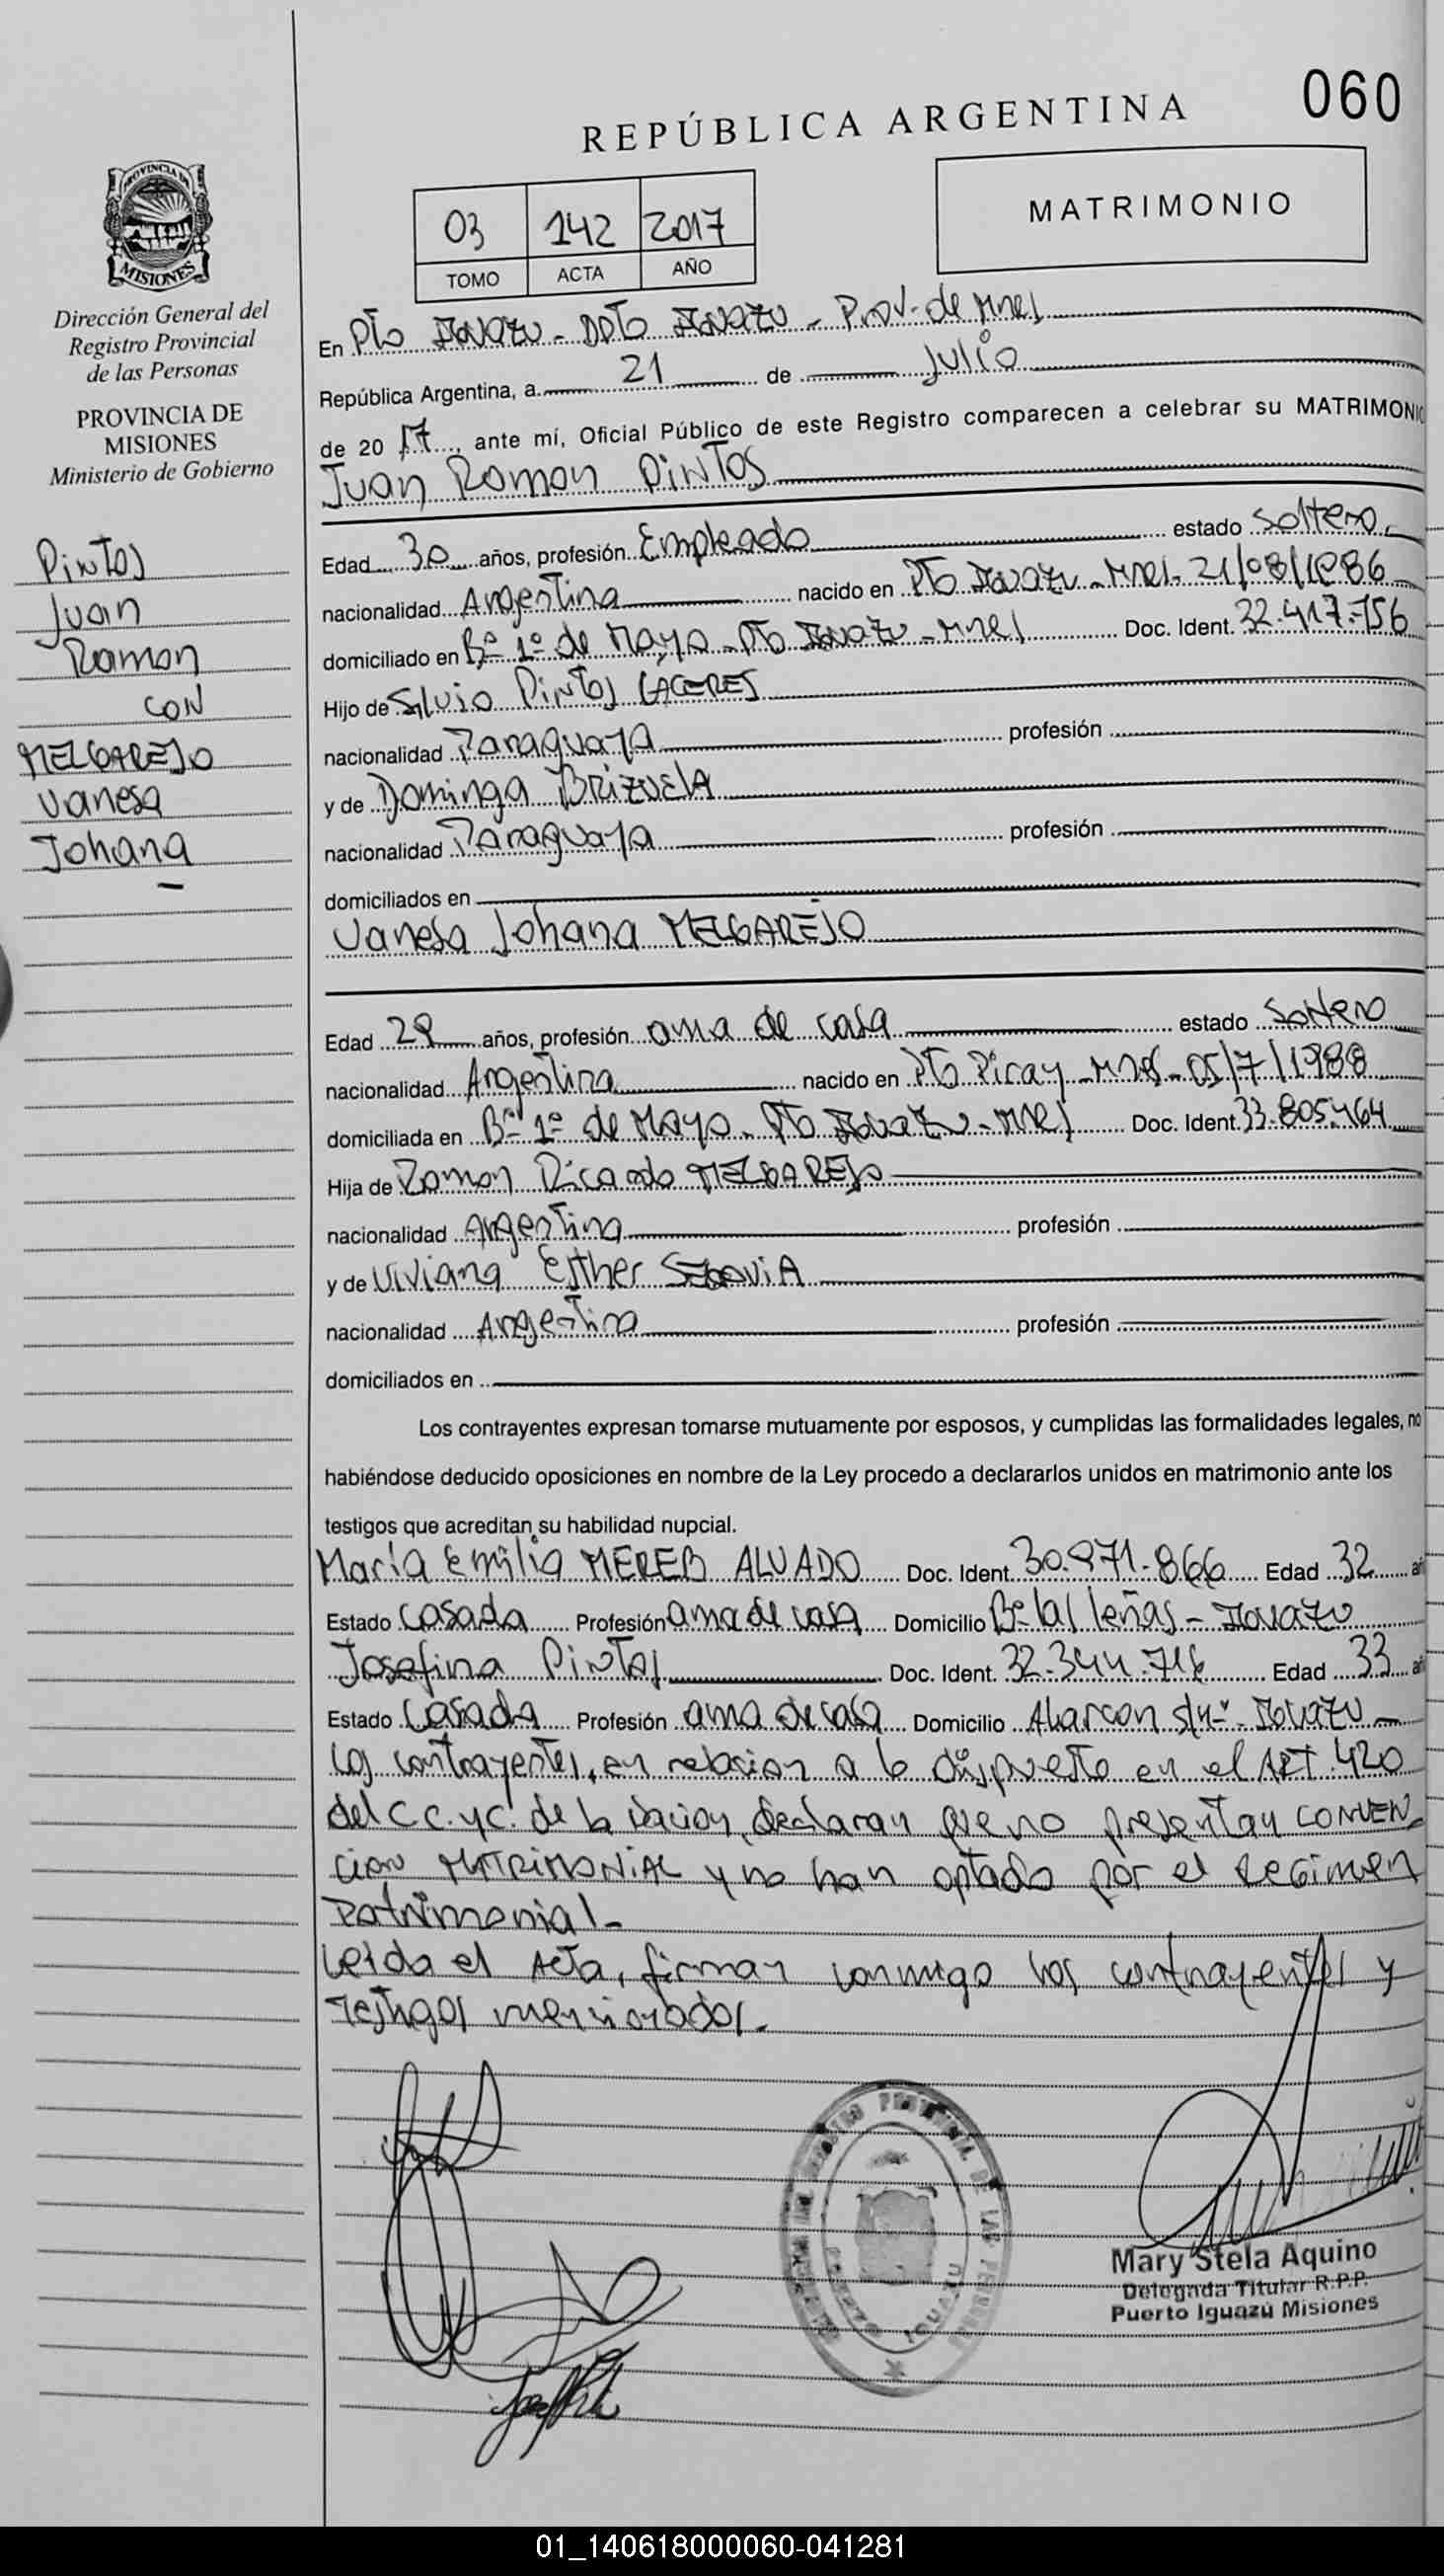 060
REPÚBLICA ARGENTINA
MATRIMONIO
03 142 2017
TOMO ACTA AÑO
PROVINCIA DE
MISIONES
Dirección General del
Registro Provincial
de las Personas
PROVINCIA DE
MISIONES
Ministerio de Gobierno
Pintos
Juan
Ramon
CON
MELGAREJO
Vanesa
Johana
En Pto Iguazu - Dpto Iguazu - Prov. de Mnes
República Argentina, a 21 de Julio
de 20 17, ante mí, Oficial Público de este Registro comparecen a celebrar su MATRIMONIO
Juan Ramon PINTOS
Edad 30 años, profesión Empleado estado Soltero
nacionalidad Argentina nacido en Pto Iguazu - Mnes - 21/08/1986
domiciliado en Bº 1º de Mayo - Pto Iguazu - Mnes Doc. Ident. 32.417.756
Hijo de Silvio Pintos CACERES
nacionalidad Paraguaya profesión
y de Dominga BRIZUELA
nacionalidad Paraguaya profesión
domiciliados en
Vanesa Johana MELGAREJO
Edad 29 años, profesión ama de casa estado Soltero
nacionalidad Argentina nacido en Pto Piray - Mnes - 05/7/1988
domiciliada en Bº 1º de Mayo - Pto Iguazu - Mnes Doc. Ident. 33.805.464
Hija de Ramon Ricardo MELGAREJO
nacionalidad Argentina profesión
y de Viviana Esther SEGOVIA
nacionalidad Argentina profesión
domiciliados en
Los contrayentes expresan tomarse mutuamente por esposos, y cumplidas las formalidades legales, no
habiéndose deducido oposiciones en nombre de la Ley procedo a declararlos unidos en matrimonio ante los
testigos que acreditan su habilidad nupcial.
María Emilia MEREB ALVADO Doc. Ident. 30.971.866 Edad 32
Estado Casada Profesión ama de casa Domicilio Bº las leñas - Iguazu
Josefina Pintos Doc. Ident. 32.344.716 Edad 33
Estado Casada Profesión ama de casa Domicilio Alarcon s/nº - Iguazu
Los contrayentes, en relacion a lo dispuesto en el ART. 420
del C.C.yC. de la Nacion, declaran que no presentan CONVEN
cion MATRIMONIAL y no han optado por el Regimen
Patrimonial -
Leida el Acta, firman conmigo los contrayentes y
Testigos mencionados. -
REGISTRO PROVINCIAL DE LAS PERSONAS
PUERTO IGUAZU
Mary Stela Aquino
Delegada Titular R.P.P.
Puerto Iguazú Misiones
01_140618000060-041281